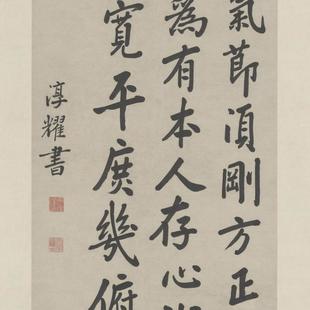 氣節須剛方正
為有本人存心
寬平庶幾俯
淳耀書